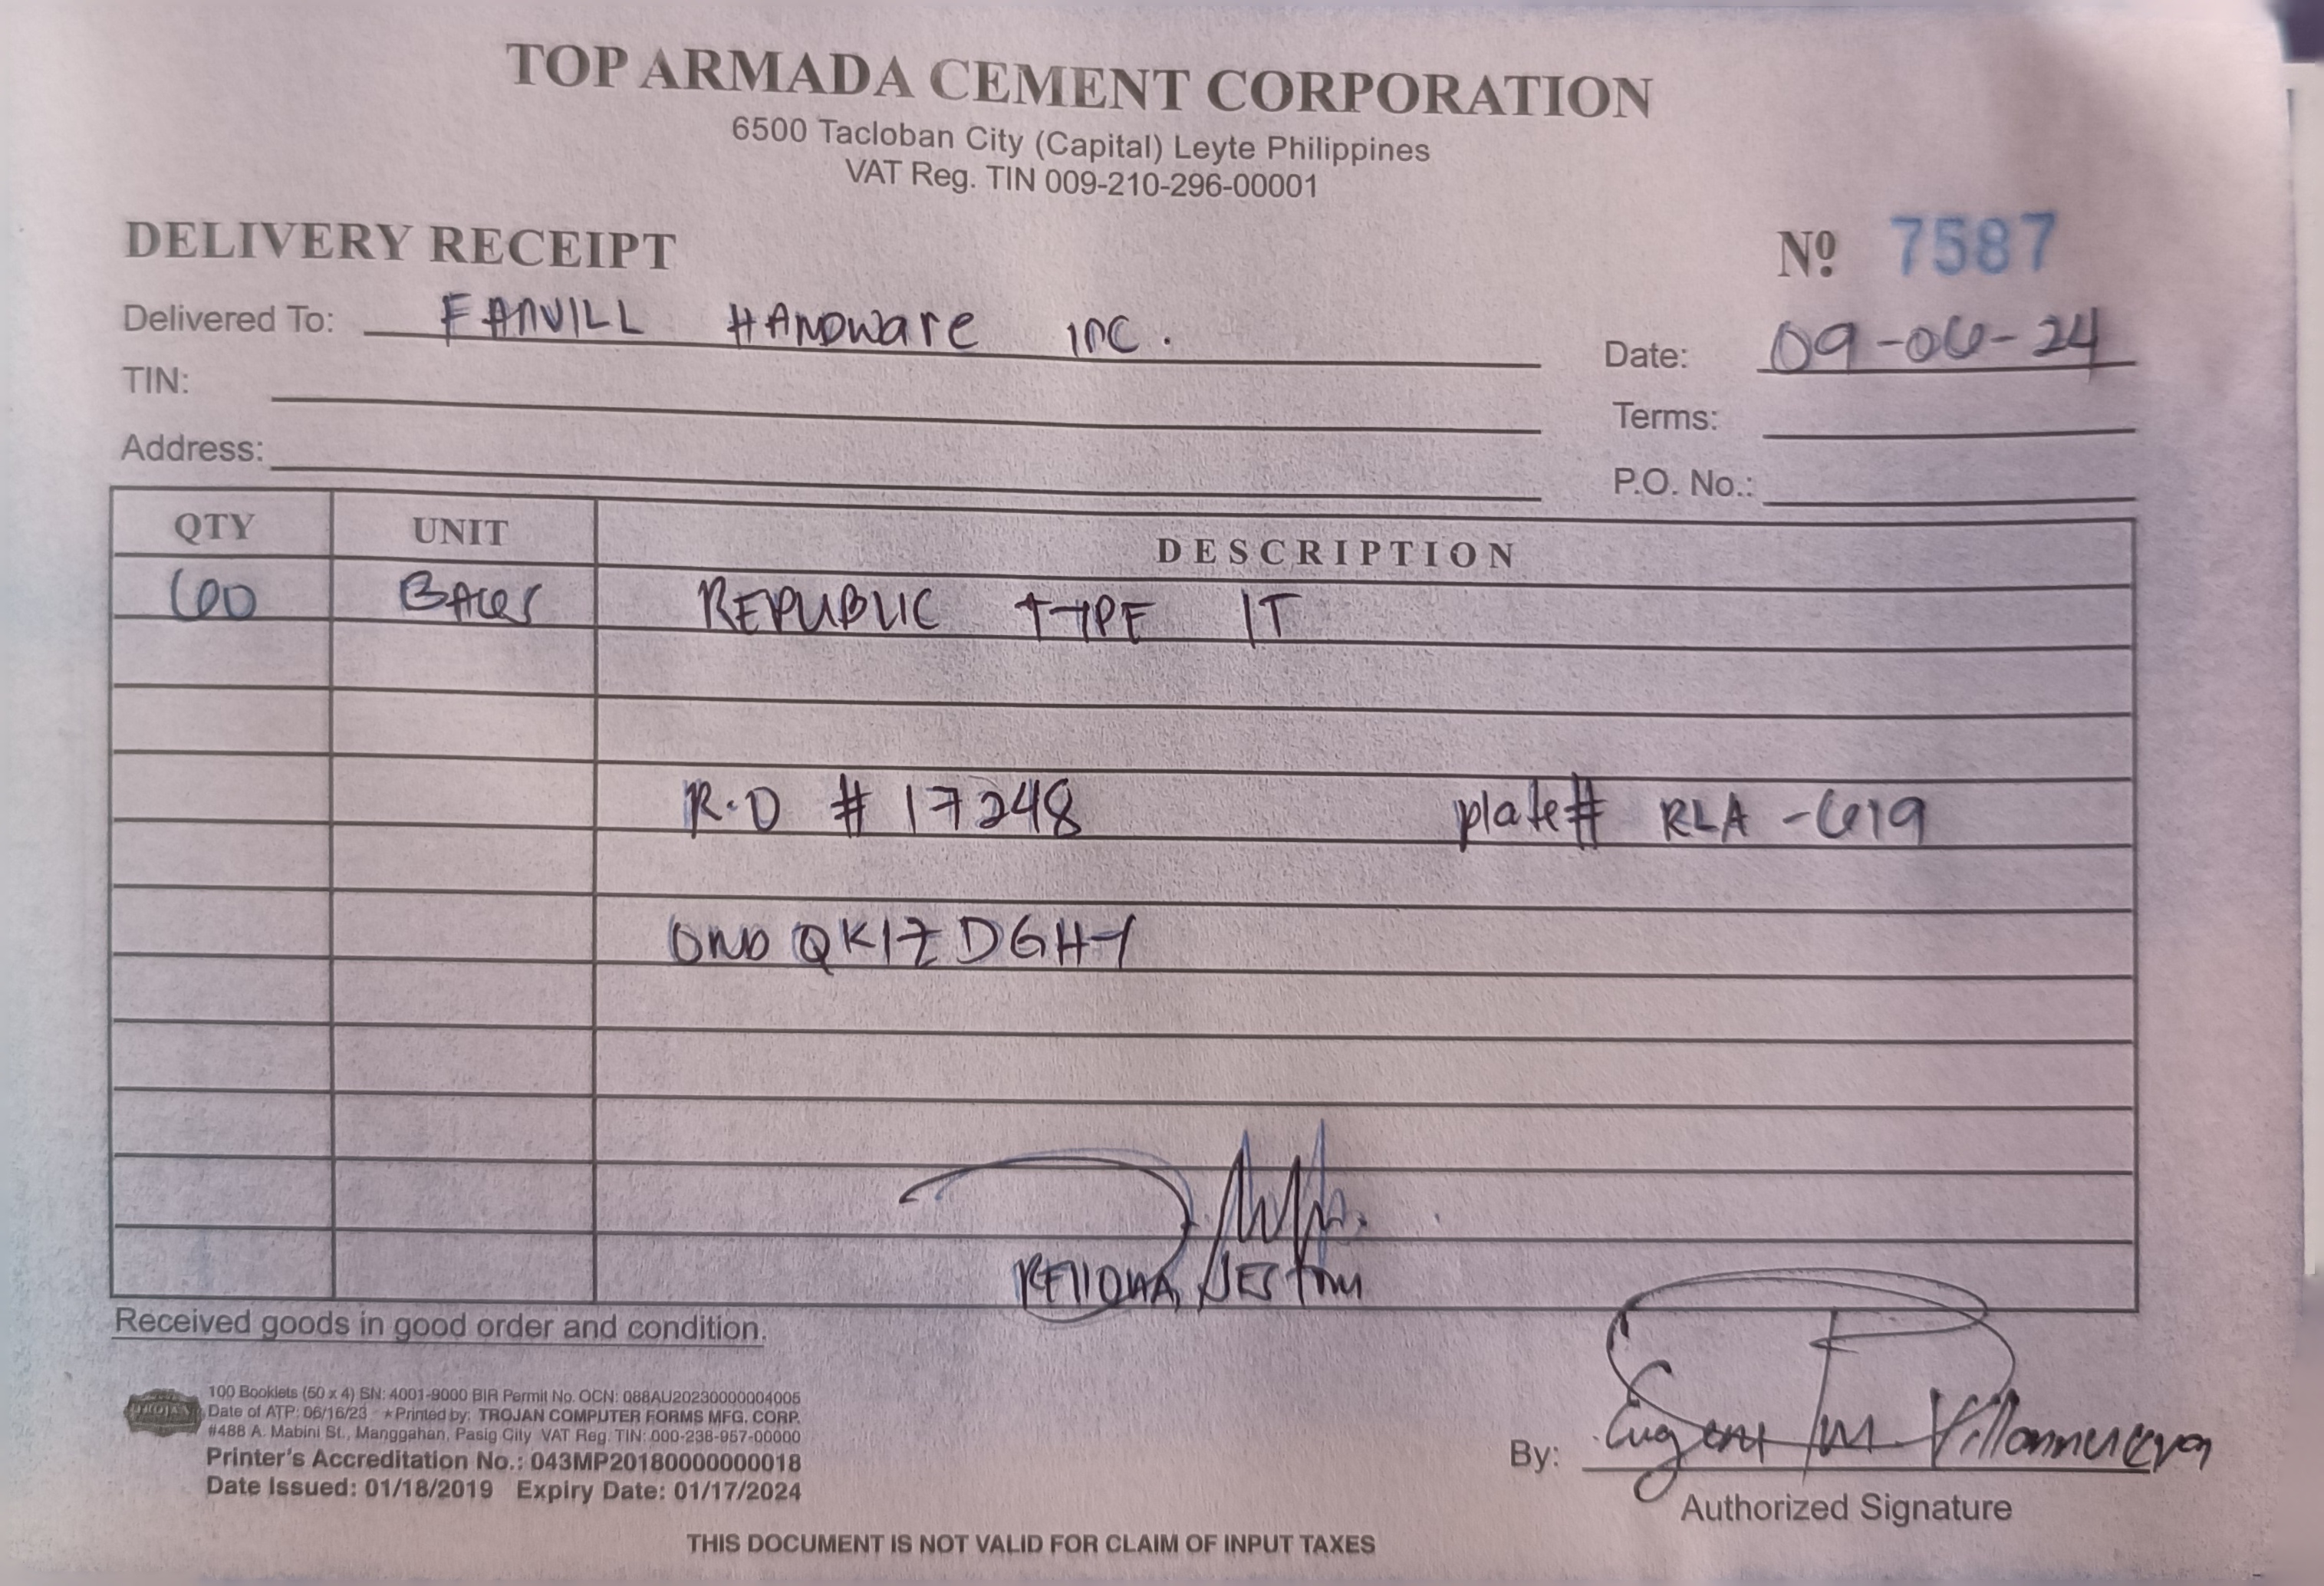 TOP ARMADA CEMENT CORPORATION
6500 Tacloban City (Capital) Leyte Philippines
VAT Reg. TIN 009-210-296-00001
DELIVERY RECEIPT
Nº 7587
Delivered To: FANVILL HANDware INC.
Date: 09-06-24
TIN:
Terms:
Address:
P.O. No.:
QTY UNIT DESCRIPTION
600 BAGS REPUBLIC TYPE 1T
R.O # 17248 plate# RLA-619
QK1Z DGHY
Received goods in good order and condition.
TROJAN
100 Booklets (50 x 4) SN: 4001-9000 BIR Permit No. OCN: 088AU20230000004005
Date of ATP: 06/16/23 ★Printed by: TROJAN COMPUTER FORMS MFG. CORP.
#488 A. Mabini St., Manggahan, Pasig City VAT Reg. TIN: 000-238-957-00000
Printer's Accreditation No.: 043MP20180000000018
Date Issued: 01/18/2019 Expiry Date: 01/17/2024
By: Eugene M. Villanueva
Authorized Signature
THIS DOCUMENT IS NOT VALID FOR CLAIM OF INPUT TAXES